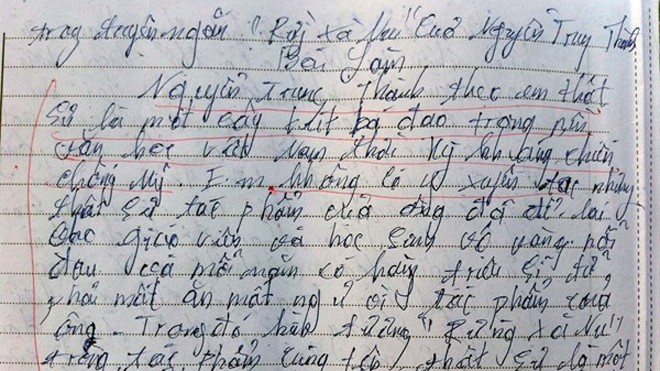 trong truyện ngắn "Rừng xà Nu" của Nguyễn Trung Thành
Bài Làm
Nguyễn Trung Thành theo em thật
sự là một cây bút bá đạo trong nền
văn học việt Nam thời kỳ kháng chiến
chống Mỹ. Em không có ý xuyên tạc nhưng
thật sự tác phẩm của ông đã để lại
cho giáo viên và học sinh vô vàng nỗi
đau cả mỗi năm có hàng triệu sĩ tử
phải mất ăn mất ngủ vì tác phẩm của
ông. Trong đó hình tượng "Rừng Xà Nu"
trong tác phẩm cùng tên thật sự là một